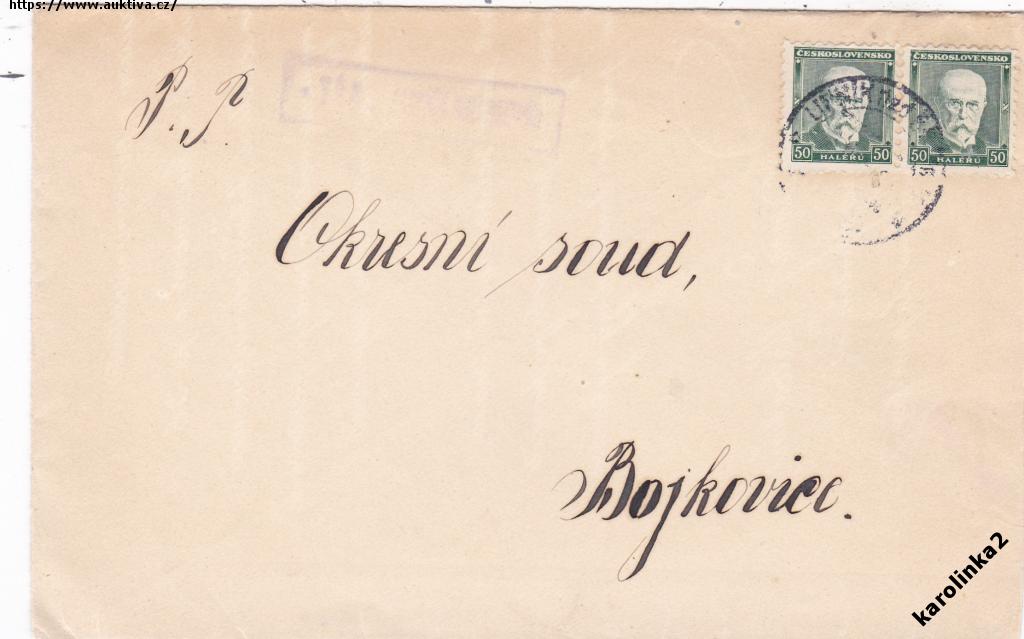 https://www.auktiva.cz/
P. P.
ČESKOSLOVENSKO
50 HALÉŘŮ 50
ČESKOSLOVENSKO
50 HALÉŘŮ 50
Okresní soud,
Bojkovice.
karolinka2